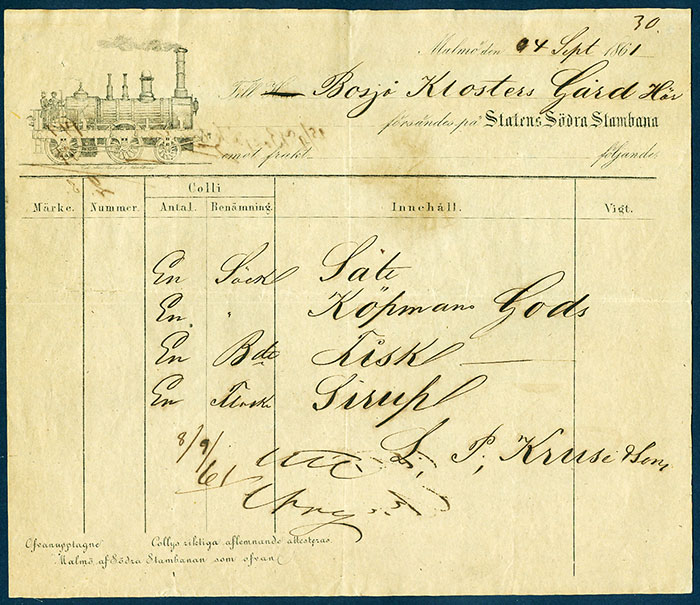 30.
Malmö den 04 Sept 1861
Till Bosjö Klosters Gård Hör
försändes på Statens Södra Stambana
emot frakt följande
Colli
Märke. Nummer. Antal. Benämning. Innehåll. Vigt.
En Säck
En " Köpmans Gods
En Bdt Fisk
En Sirup
8/9/61
L. P. Kruse & Son
Ofvanupptagne Collys riktiga aflemnande attesteras.
Malmö af Södra Stambanan som ofvan